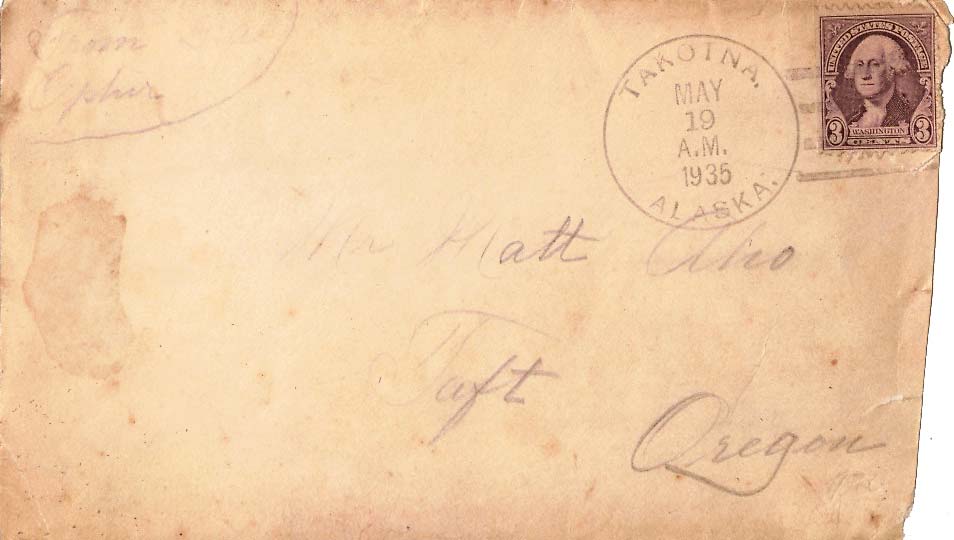 From
Ophir
TAKOTNA.
MAY
19
A.M.
1935
ALASKA.
UNITED STATES POSTAGE
3 WASHINGTON 3
CENTS
Mr Matt Aho
Taft
Oregon